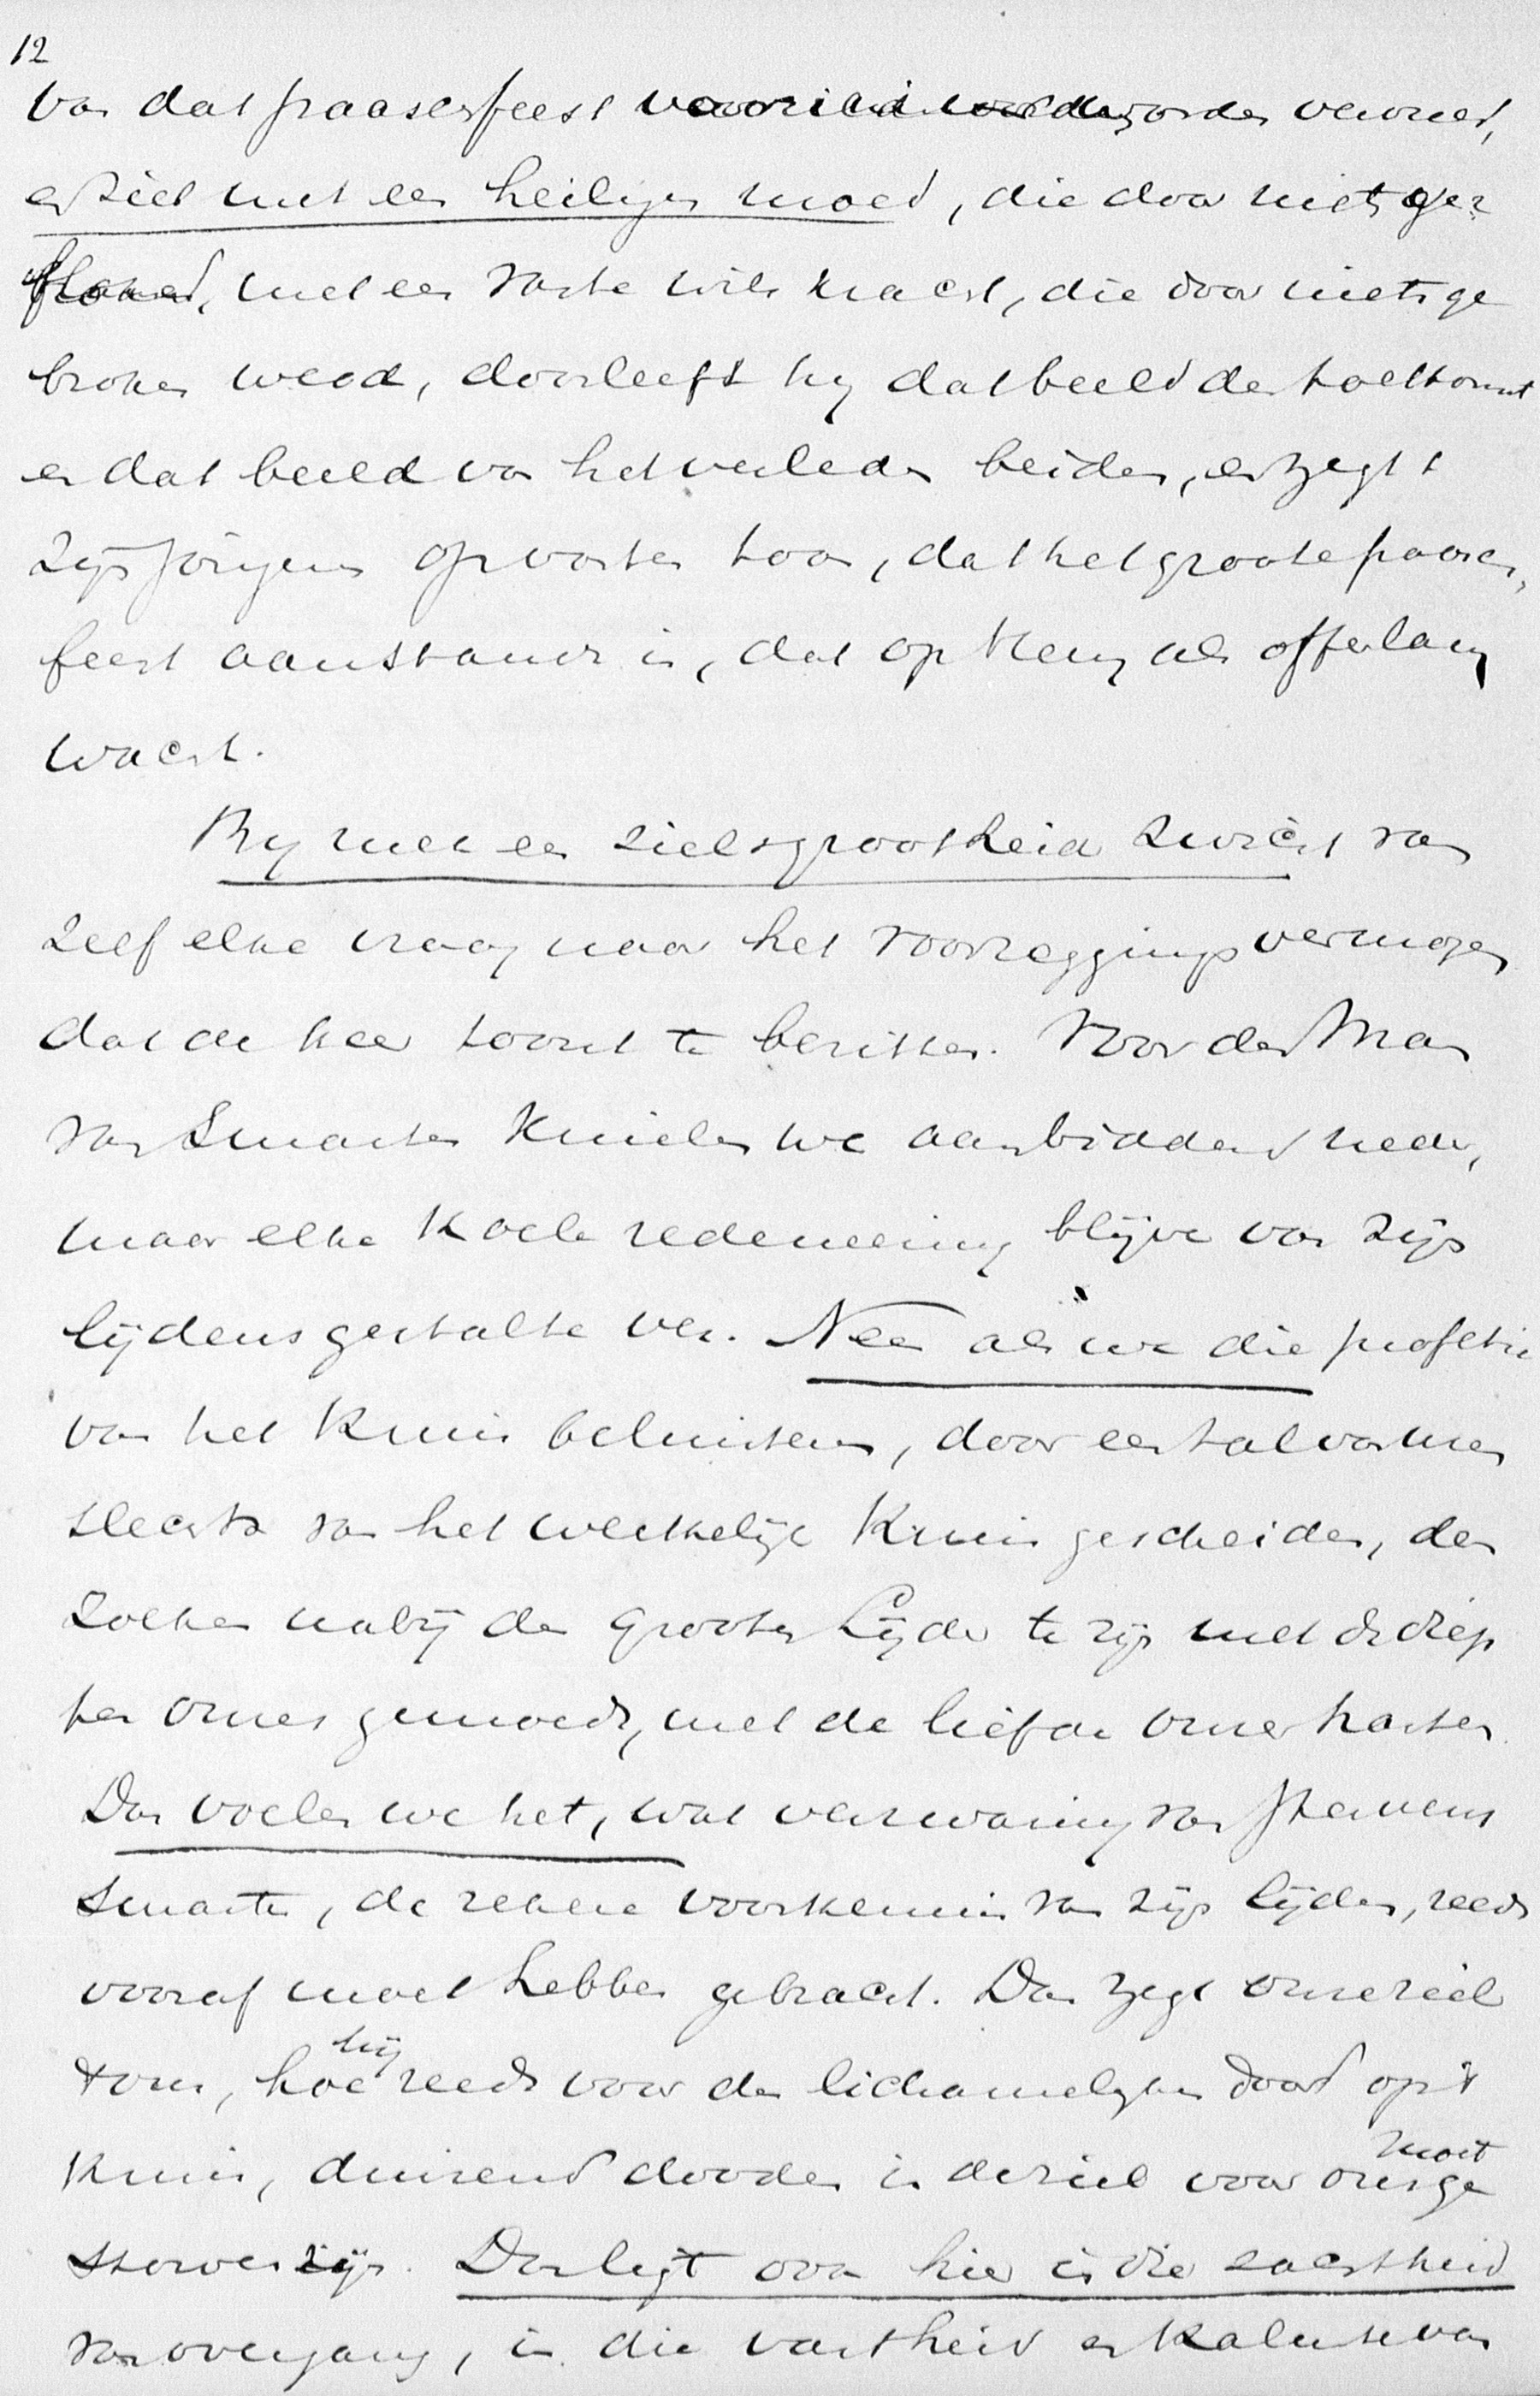 12
van dat paaschfeest worden vervuld,
en ziet met een heiligen moed, die door niets ge
, met een vaste wilskracht, die door niets ge
broken werd, doorleeft hij dat beeld der toekomst
en dat beeld van het verleden beiden, en zegt 't
zijn jongeren op vasten toon, dat het groote paasch
feest aanstaande is, dat op Hem als offerlam
wacht.
By zulk een zielsgrootheid zwicht van
zelf elke vraag naar het voorzeggingsvermogen
dat de heer toont te bezitten. Voor den Man
van Smarten knielen we aanbiddend neder,
maar elke koele redeneering blijve van zijn
lijdensgestalte ver. Neen als we die profetie
van het Kruis beluisteren, door een tal van uren
slechts van het werkelijk Kruis gescheiden, dan
zoeken nabij den grooten Lijder te zijn met de diep
ten onzes gemoeds, met de liefde onzer harten.
Dan voelen we het, wat verzwaring van Jezus
smarte, de zekere voorkennis van zijn lijden, reeds
vooraf moet hebben gebracht. Dan zegt onze ziel
't ons, hoe hij reeds voor den lichamelijken dood op 't
Kruis, duizend dooden in de ziel voor ons moet ge
storven zijn. Dan ligt ook hier in die zachtheid
van overgang, in die vastheid en kalmte van